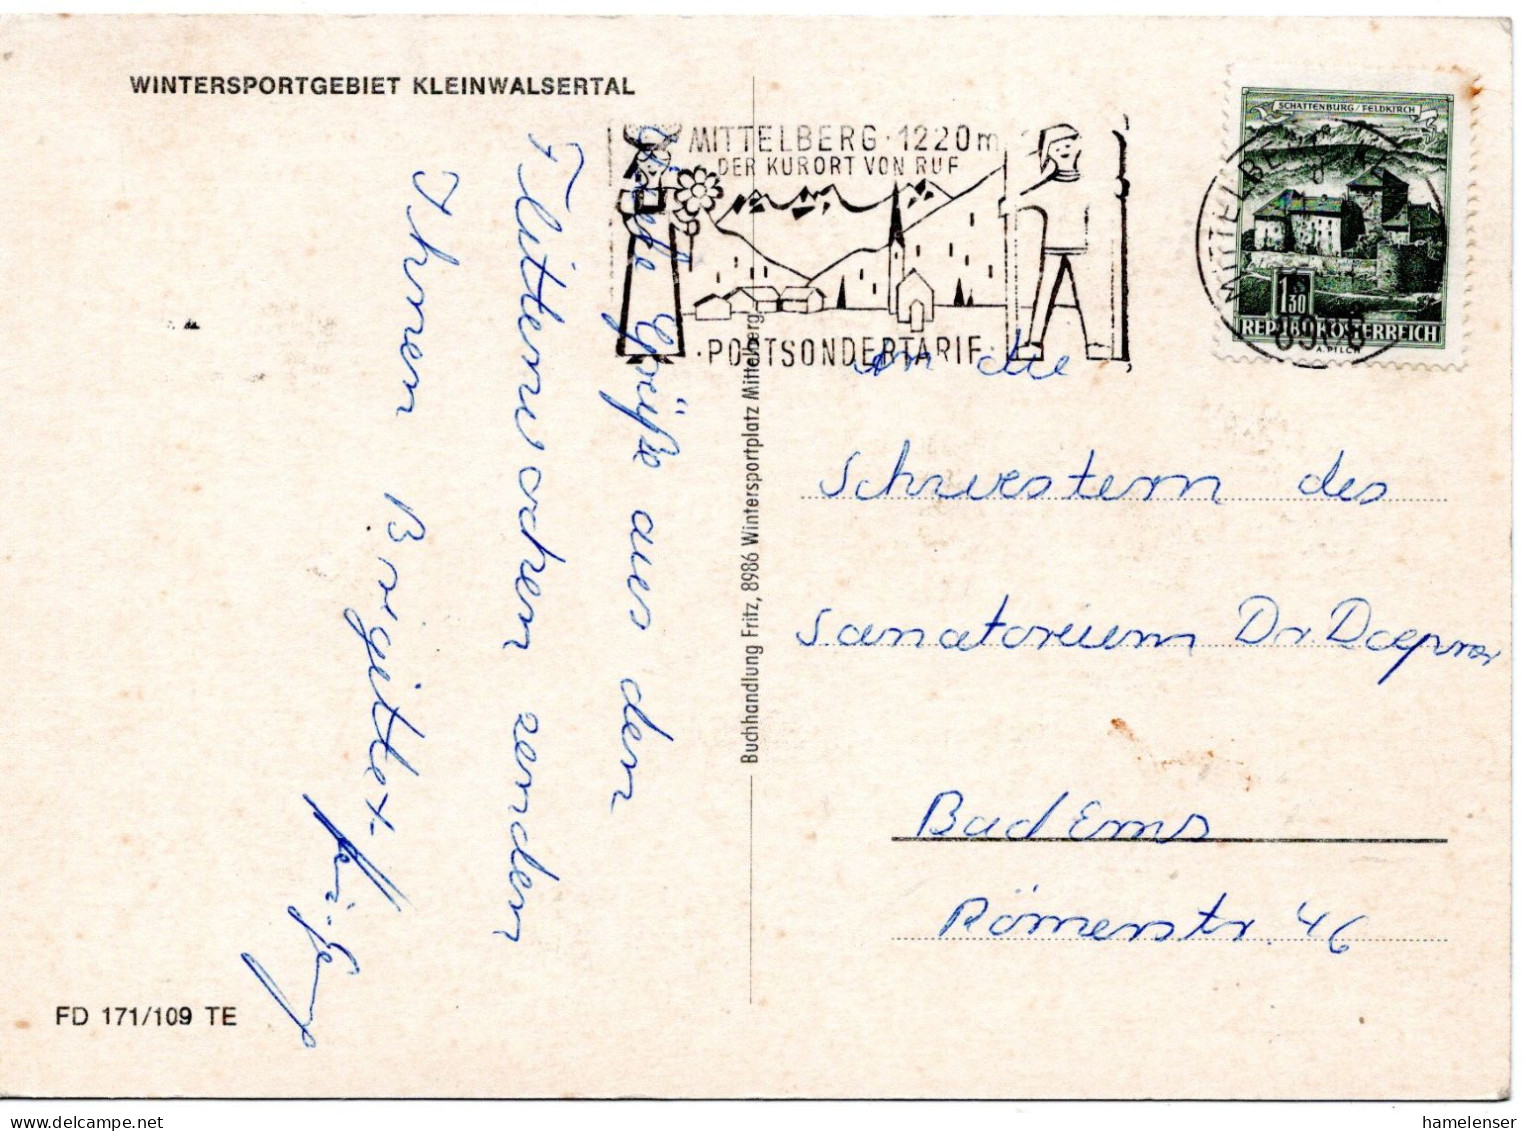 WINTERSPORTGEBIET KLEINWALSERTAL
MITTELBERG · 1220 m
DER KURORT VON RUF
· POSTSONDERTARIF ·
SCHATTENBURG/FELDKIRCH
1.30
REPUBLIK ÖSTERREICH
A. PILCH
Liebe Grüße aus den
Flitterwochen senden
Ihnen Brigitte +
Buchhandlung Fritz, 8986 Wintersportplatz Mittelberg
an die
Schwestern des
Sanatorium Dr
Bad Ems
Römerstr. 46
FD 171/109 TE
hamelenser